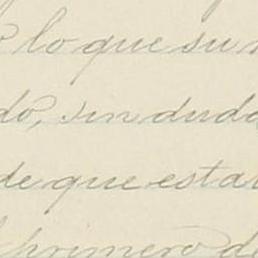 lo que su
do, sin duda
de que esta
primero de